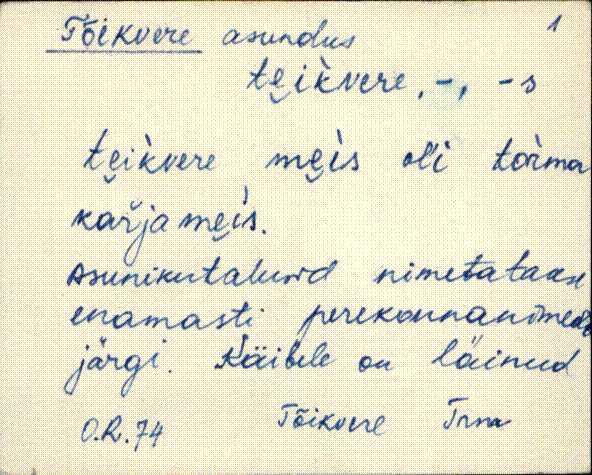 Tõikvere asundus 1
te̮ik̀vere, -, -s
te̮ik̀vere me̮is oĺi torma
kaŕjame̮is.
Asunikutalusid nimetatakse
enamasti perekonnanimede
järgi. Käibele on läinud
O.R. 74 Tõikvere Trm